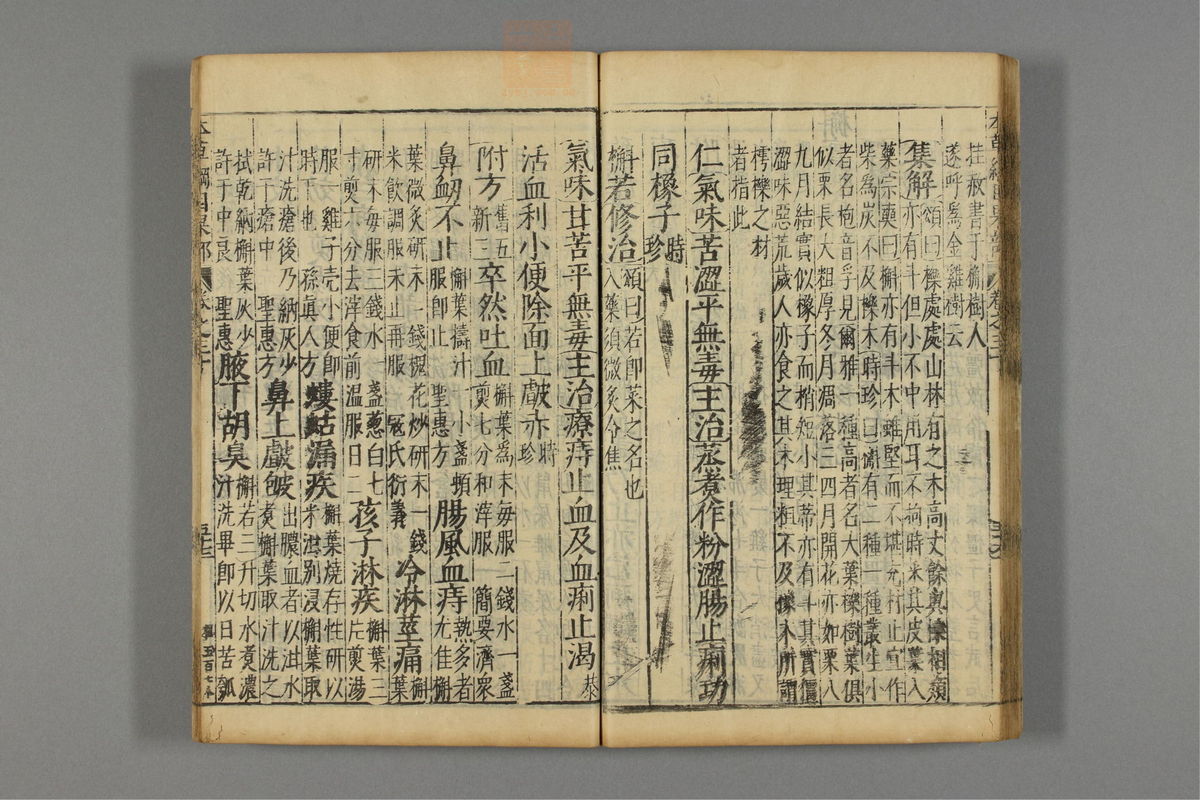 本草綱目果部 卷之三十
挂赦書于槲樹人
遂呼爲金雞樹云
集解 頌曰槲處處山林有之木高丈餘與櫟相類
亦有斗但小不中用耳不拘時采其皮葉入
藥宗奭曰槲亦有斗木雖堅而不堪充材止宜作
柴爲炭不及櫟木時珍曰槲有二種一種叢生小
者名枹音孚見爾雅一種高者名大葉櫟樹葉俱
似栗長大粗厚冬月凋落三四月開花亦如栗八
九月結實似橡子而稍短小其蒂亦有斗其實僵
澀味惡荒歲人亦食之其木理粗不及橡木所謂
樗櫟之材
者指此
仁氣味苦澀平無毒主治蒸煮作粉澀腸止痢功
同橡子時珍
槲若修治 頌曰若即葉之名也
入藥須微炙令焦
氣味甘苦平無毒主治療痔止血及血痢止渴恭
活血利小便除面上皶赤時珍
附方 舊五新三 卒然吐血 槲葉爲末每服二錢水一盞
煎七分和滓服 簡要濟衆
鼻衄不止 槲葉擣汁一小盞頓
服即止 聖惠方 腸風血痔 熱多者
尤佳槲
葉微炙研末一錢槐花炒研末一錢
米飲調服未止再服 寇氏衍義 冷淋莖痛 槲葉
研末每服三錢水一盞葱白七
寸煎六分去滓食前溫服日二 孩子淋疾 槲葉三
片煎湯
服一雞子壳小便即
時下也 孫真人方 螻蛄漏疾 槲葉燒存性研以
米泔別浸槲葉取
汁洗瘡後乃納灰少
許于瘡中 聖惠方 鼻上皶皰 出膿血者以泔水
煮槲葉取汁洗之
拭乾納槲葉灰少
許于中良 聖惠 腋下胡臭 槲若三升切水煮濃
汁洗畢即以日苦瓠
本草綱目果部 卷之三十